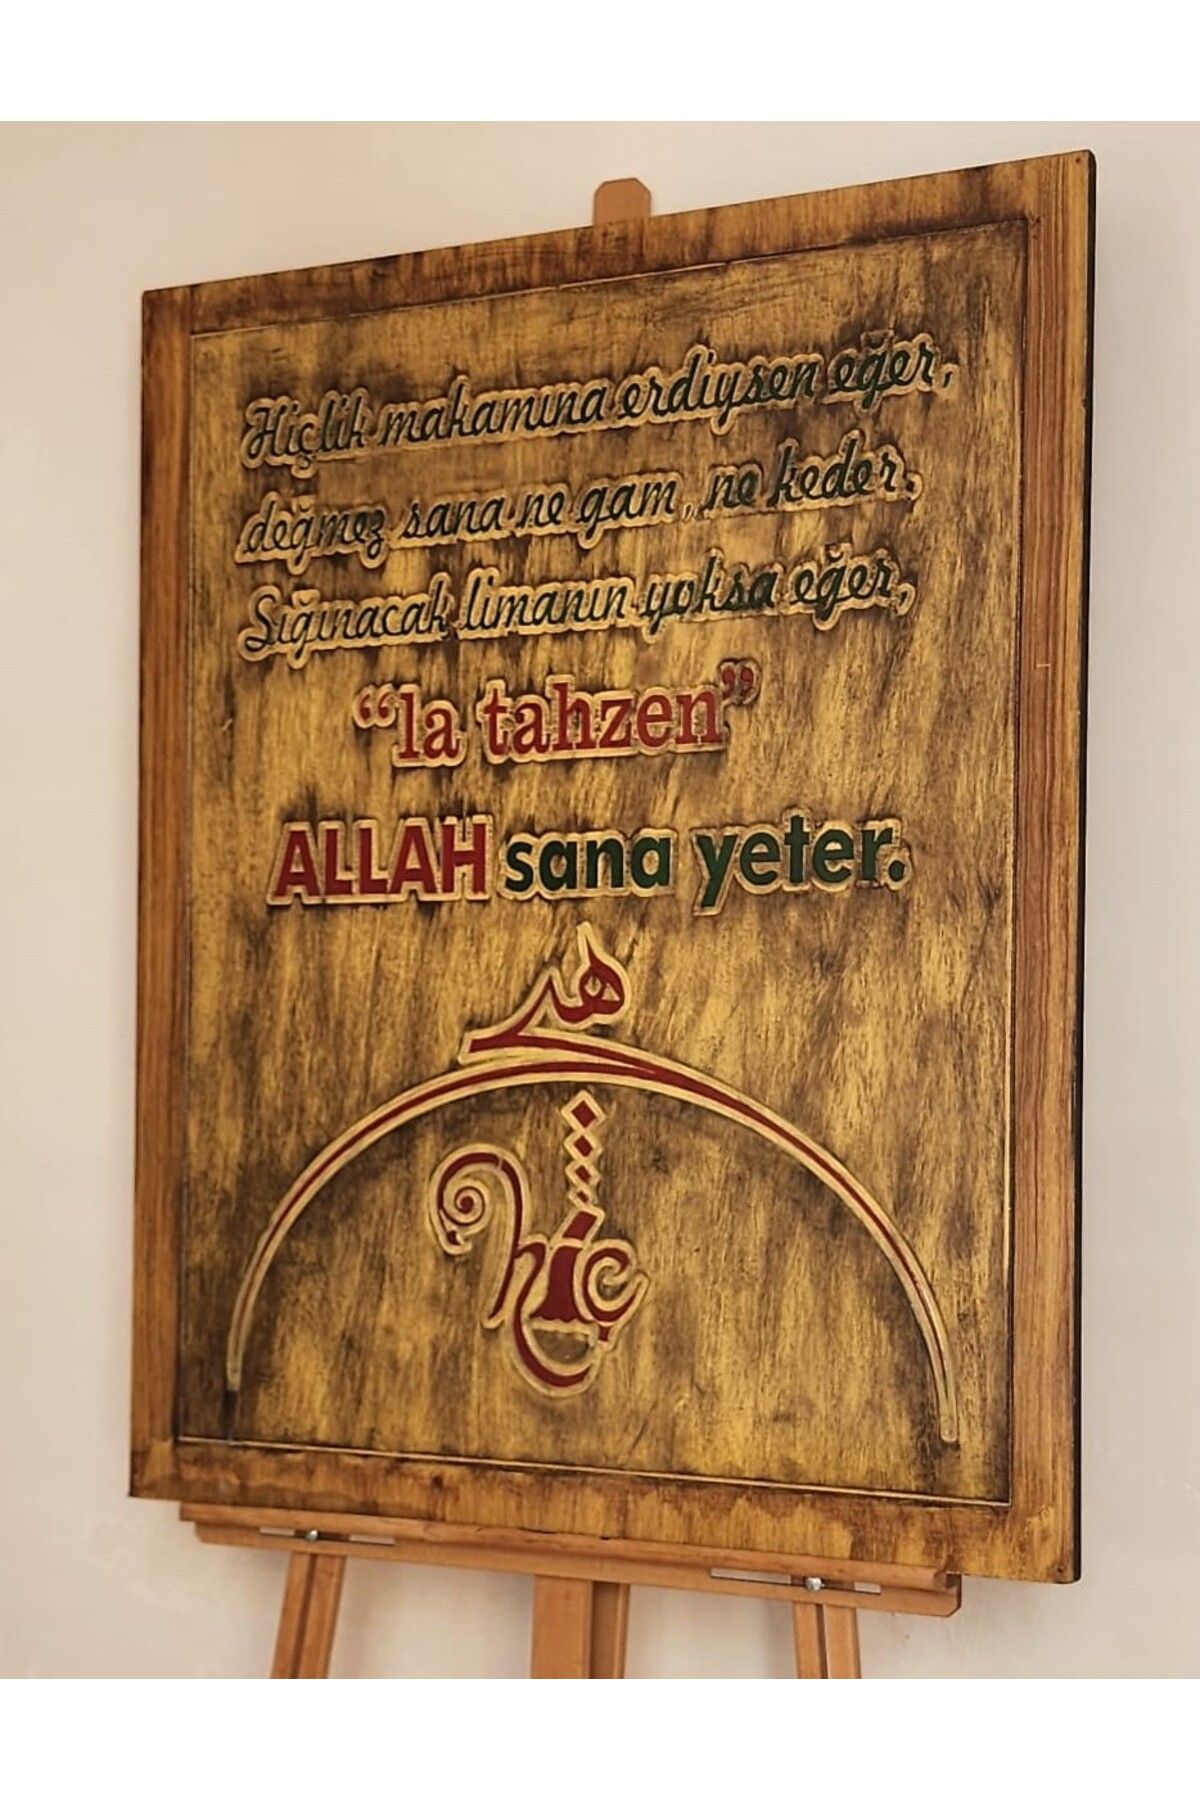 Hiçlik makamına erdiysen eğer,
değmez sana ne gam, ne keder.
Sığınacak limanın yoksa eğer,
“la tahzen”
ALLAH sana yeter.
هیچ
hiç